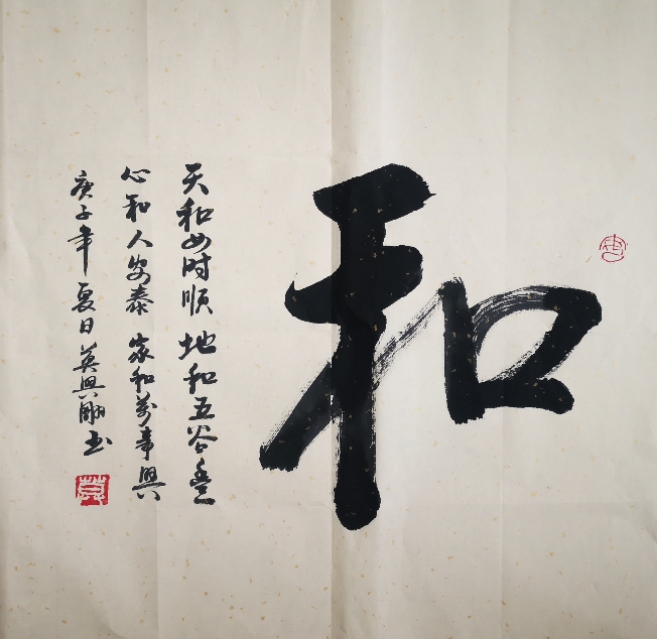 和
天和四时顺 地和五谷豐
心和人安泰 家和萬事興
庚子年夏日 興书